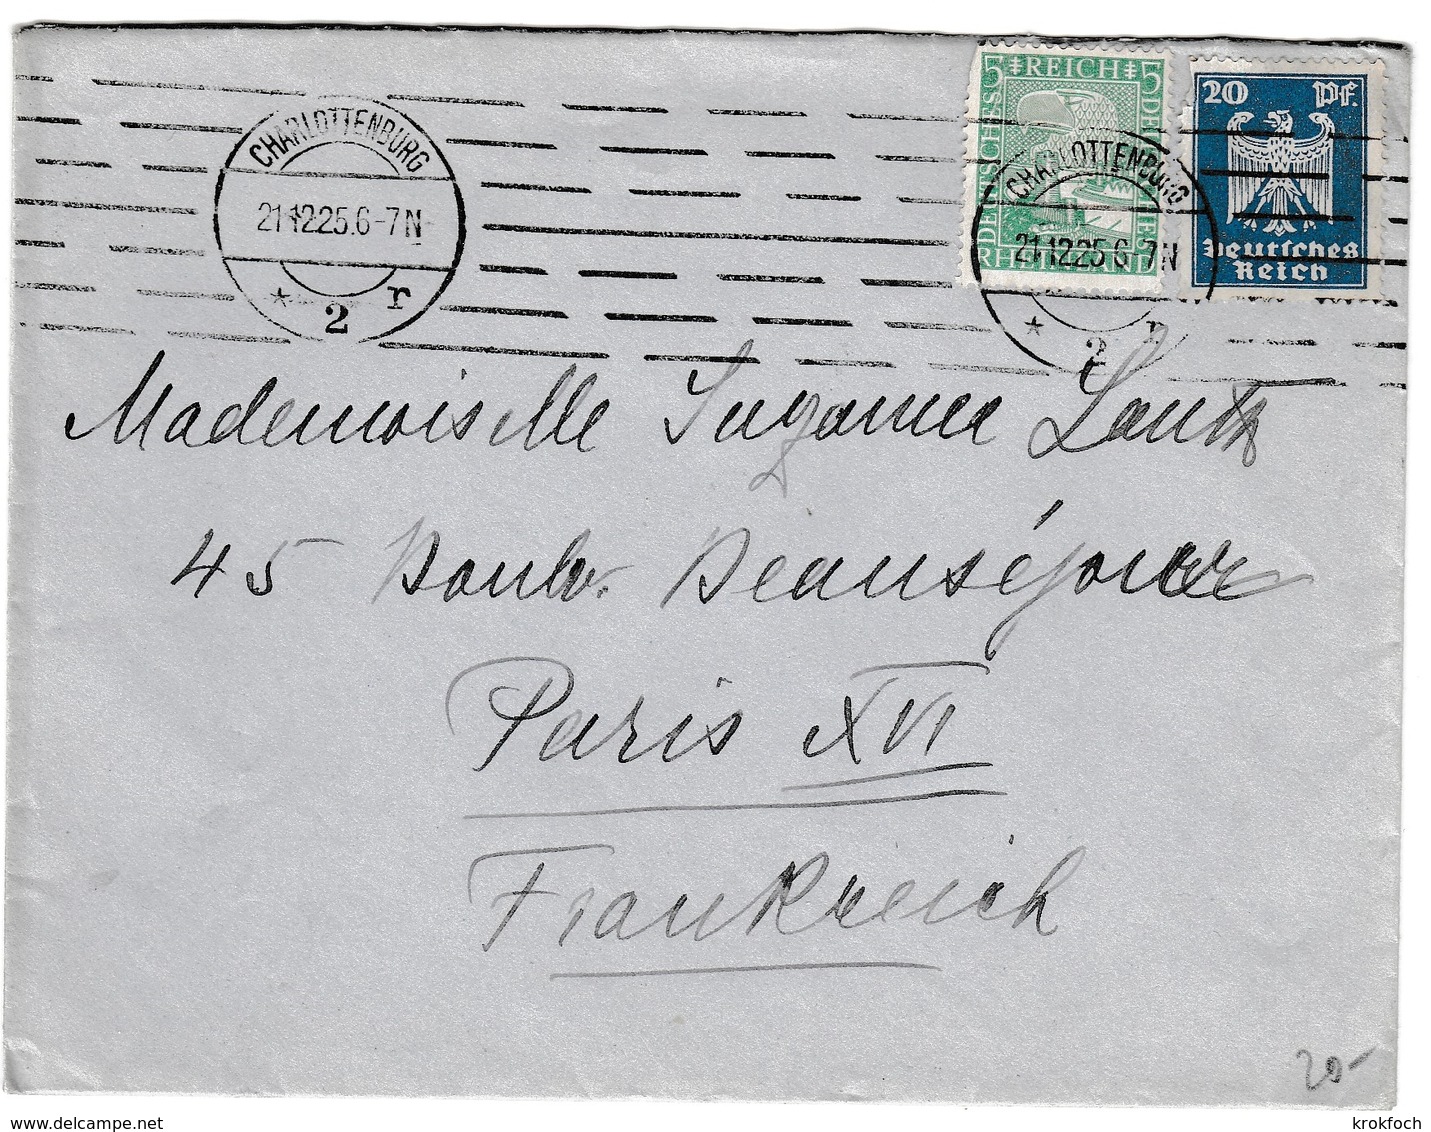 CHARLOTTENBURG
21.12.25.6-7N
* 2 r
5 REICH 5
DEUTSCHES
RHEINLAND
20 Pf.
Deutsches
Reich
CHARLOTTENBURG
21.12.25.6-7N
* 2 r
Mademoiselle Suzanne
45 Boulv. Beauséjour
Paris XVI
Frankreich
20-
www.delcampe.net
krokfoch